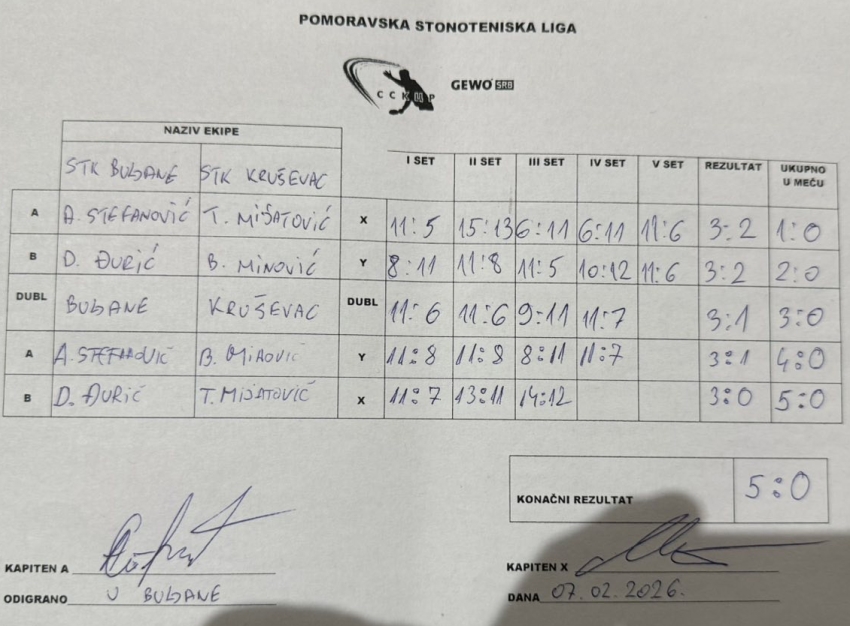 POMORAVSKA STONOTENISKA LIGA
CCKMP GEWO SRB
NAZIV EKIPE
STK BUBANE STK KRUŠEVAC I SET II SET III SET IV SET V SET REZULTAT UKUPNO U MEČU
A A. STEFANOVIĆ T. MIJATOVIĆ X 11:5 15:13 6:11 6:11 11:6 3:2 1:0
B D. ĐURIĆ B. MINOVIĆ Y 8:11 11:8 11:5 10:12 11:6 3:2 2:0
DUBL BUBANE KRUŠEVAC DUBL 11:6 11:6 9:11 11:7 3:1 3:0
A A. STEFANOVIĆ B. MINOVIĆ Y 11:8 11:8 8:11 11:7 3:1 4:0
B D. ĐURIĆ T. MIJATOVIĆ X 11:7 13:11 14:12 3:0 5:0
KONAČNI REZULTAT 5:0
KAPITEN A KAPITEN X
ODIGRANO U BUBANE DANA 07.02.2026.